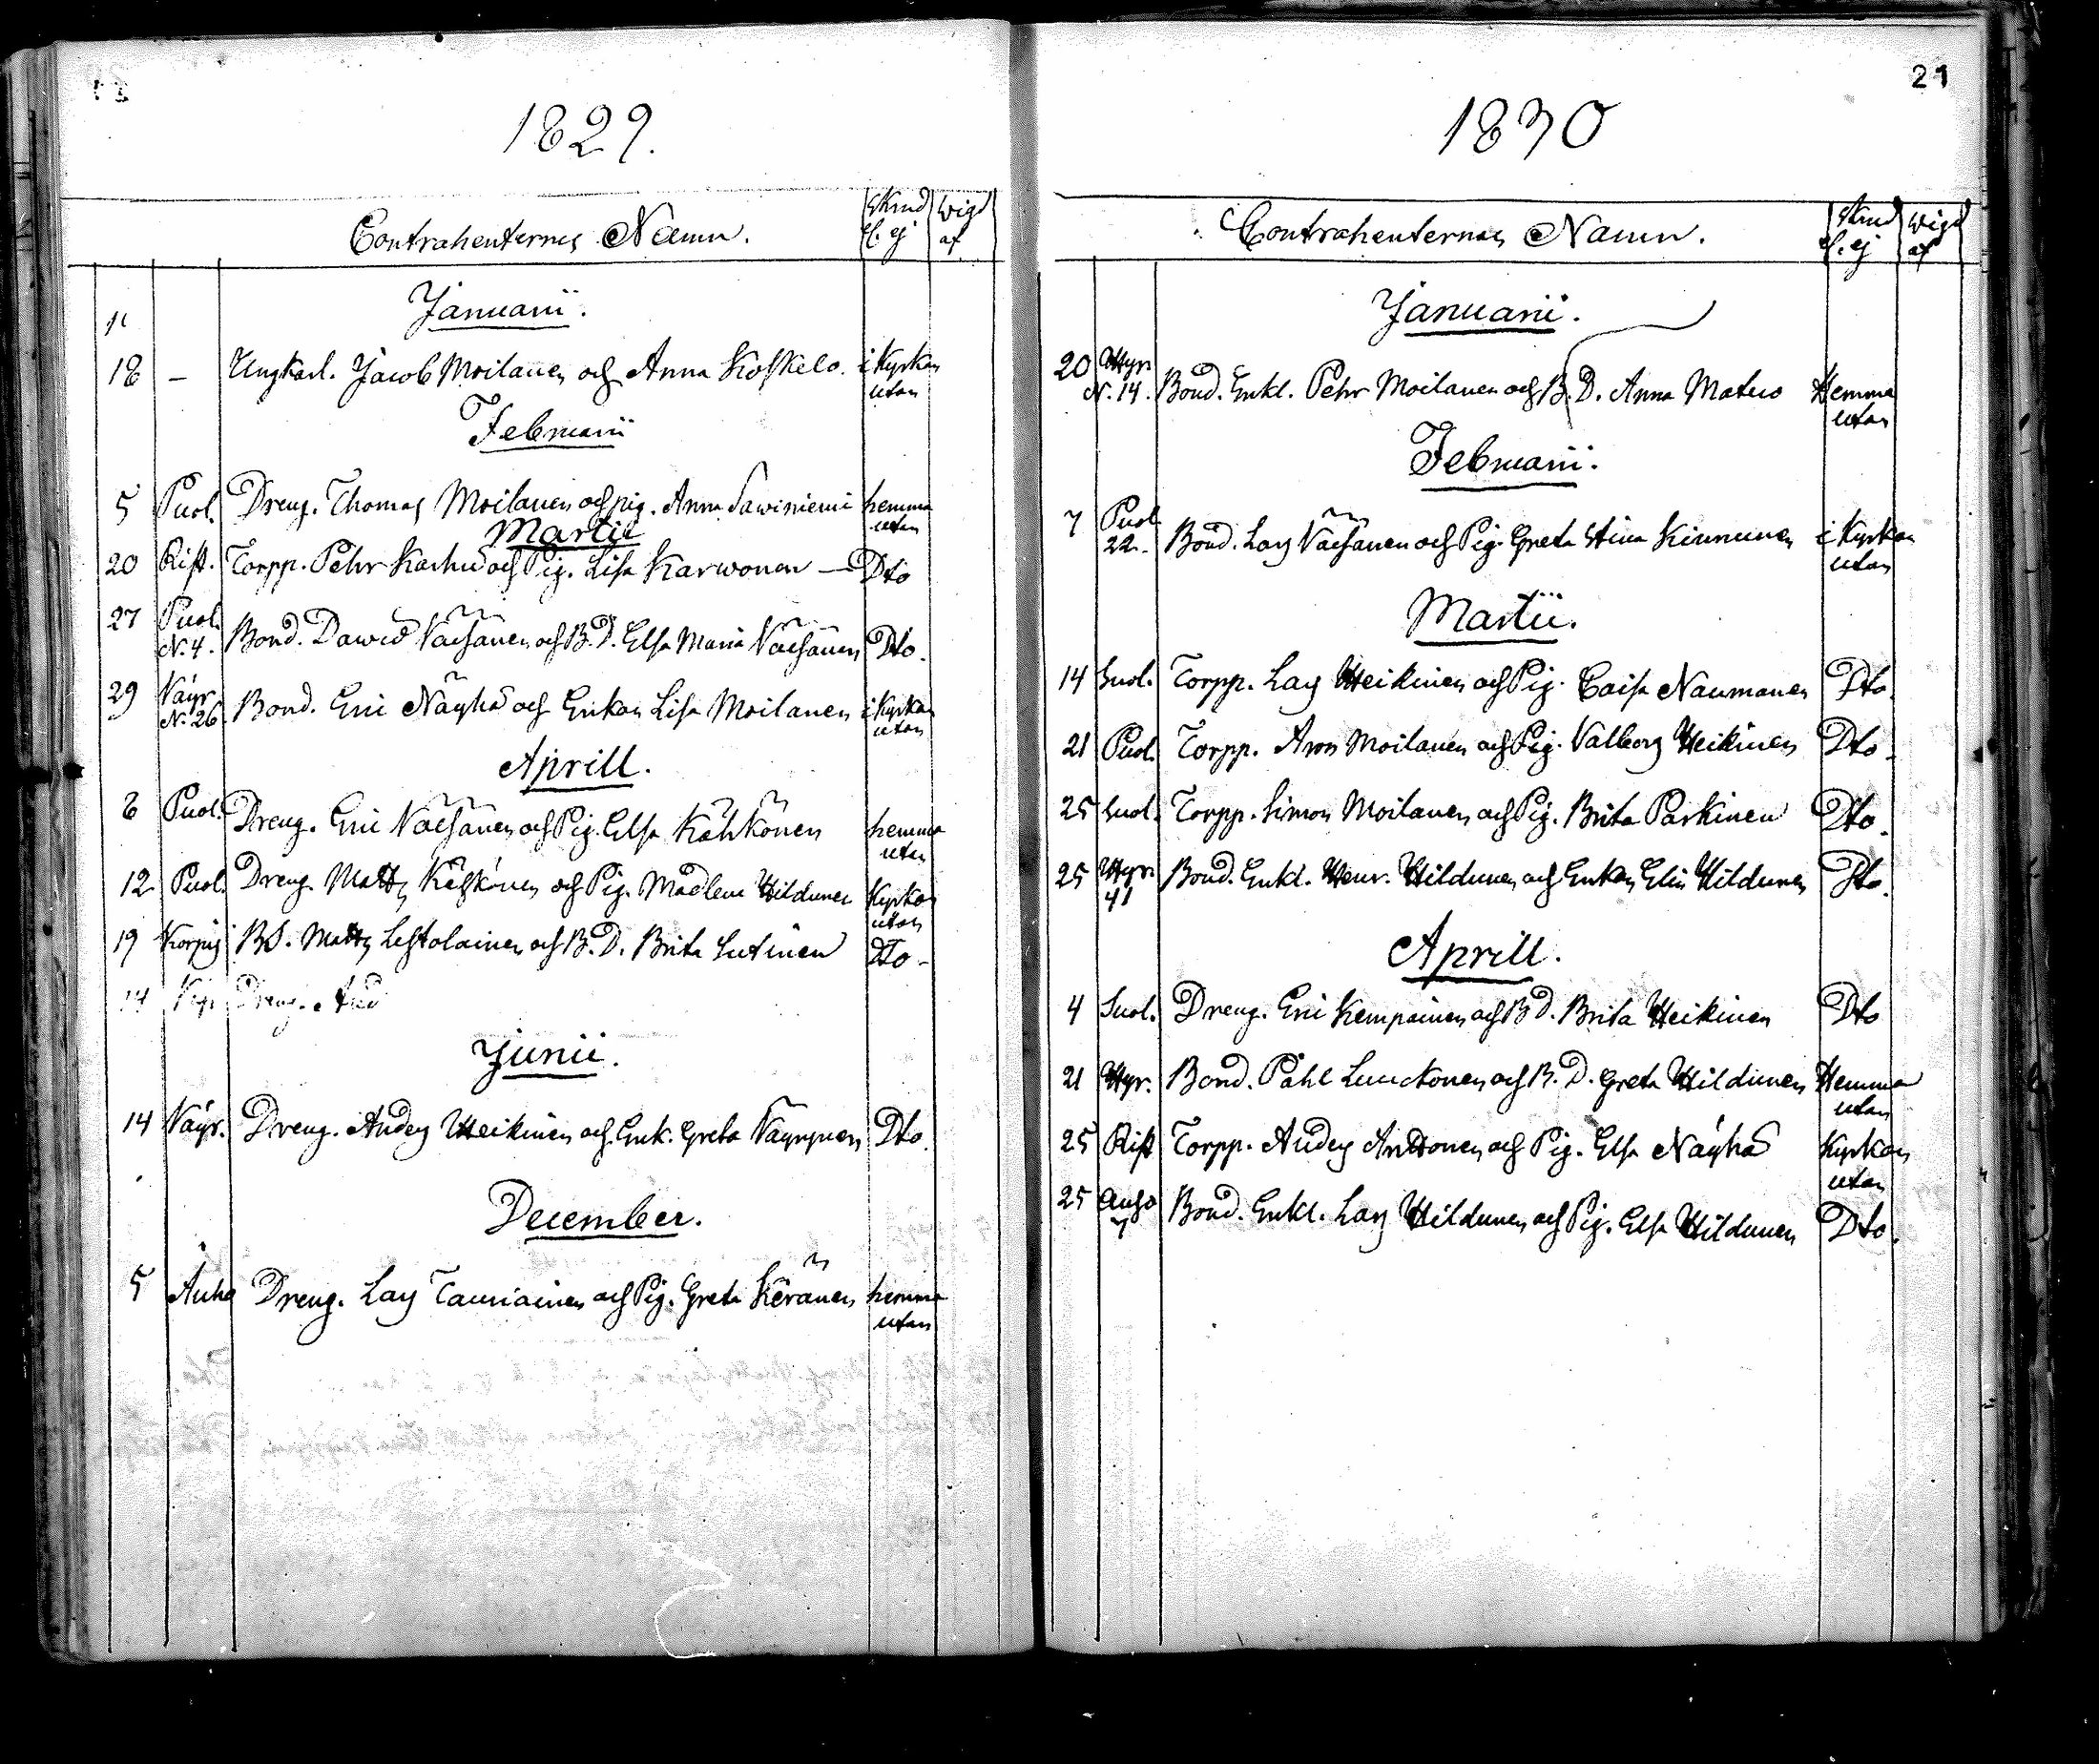 1829.
Contrahenternes Namn.
Skrud el. ej
wigd af
Januarii.
11
18 – Ungkarl. Jacob Moilanen och Anna Koskelo. i Kyrkan
utan
Februarii
5 Puol. Dreng. Thomas Moilanen och pig. Anna Sawiniemi hemma
utan
Martii
20 Rist. Torpp. Pehr Karhu och Pig. Lisa Karwonen — Dto
27 Puol. N. 4. Bond. Dawid Väisänen och B. D. Elsa Maria Väisänen Dto.
29 Väyr. N. 26 Bond. Eric Näyhä och Enkan Lisa Moilanen i Kyrkan
utan
Aprill.
6 Puol. Dreng. Eric Väisänen och Pig. Elsa Kähkönen hemma
utan
12 Puol. Dreng. Matts och Pig. Madlena Hildunen Kyrkan
utan
19 BS. Matts Lestolainen och B. D. Brita Lutinen Dto.
14 Dreng. And
Junii.
14 Väyr. Dreng. Anders Heikinen och Enk. Greta Väyrynen Dto.
December.
5 Dreng. Lars Tauriainen och Pig. Greta Keränen hemma
utan
21
1830
Contrahenternas Namn.
Skrud el. ej
wigd af
Januarii.
20 Hyr. N. 14. Bond. Enkl. Pehr Moilanen och B. D. Anna Matero Hemma
utan
Februarii.
7 Puol. 22. Bond. Lars Väisänen och Pig. Greta Stina Kinnunen i Kyrkan
utan
Martii.
14 Suol. Torpp. Lars Heikinen och Pig. Caisa Naumanen Dto.
21 Puol. Torpp. Aron Moilanen och Pig. Valborg Heikinen Dto.
25 Suol. Torpp. Simon Moilanen och Pig. Brita Parkinen Dto.
25 Hyr. 41 Bond. Enkl. Henr. Hildunen och Enkan Elin Hildunen Dto.
Aprill.
4 Suol. Dreng. Eric Kempainen och B D. Brita Heikinen Dto
21 Hyr. Bond. Påhl Luuckonen och B. D. Greta Hildunen Hemma
utan
25 Rist Torpp. Anders Anttonen och Pig. Elsa Näyhä Kyrkan
utan
25 Bond. Enkl. Lars Hildunen och Pig. Elsa Hildunen Dto.